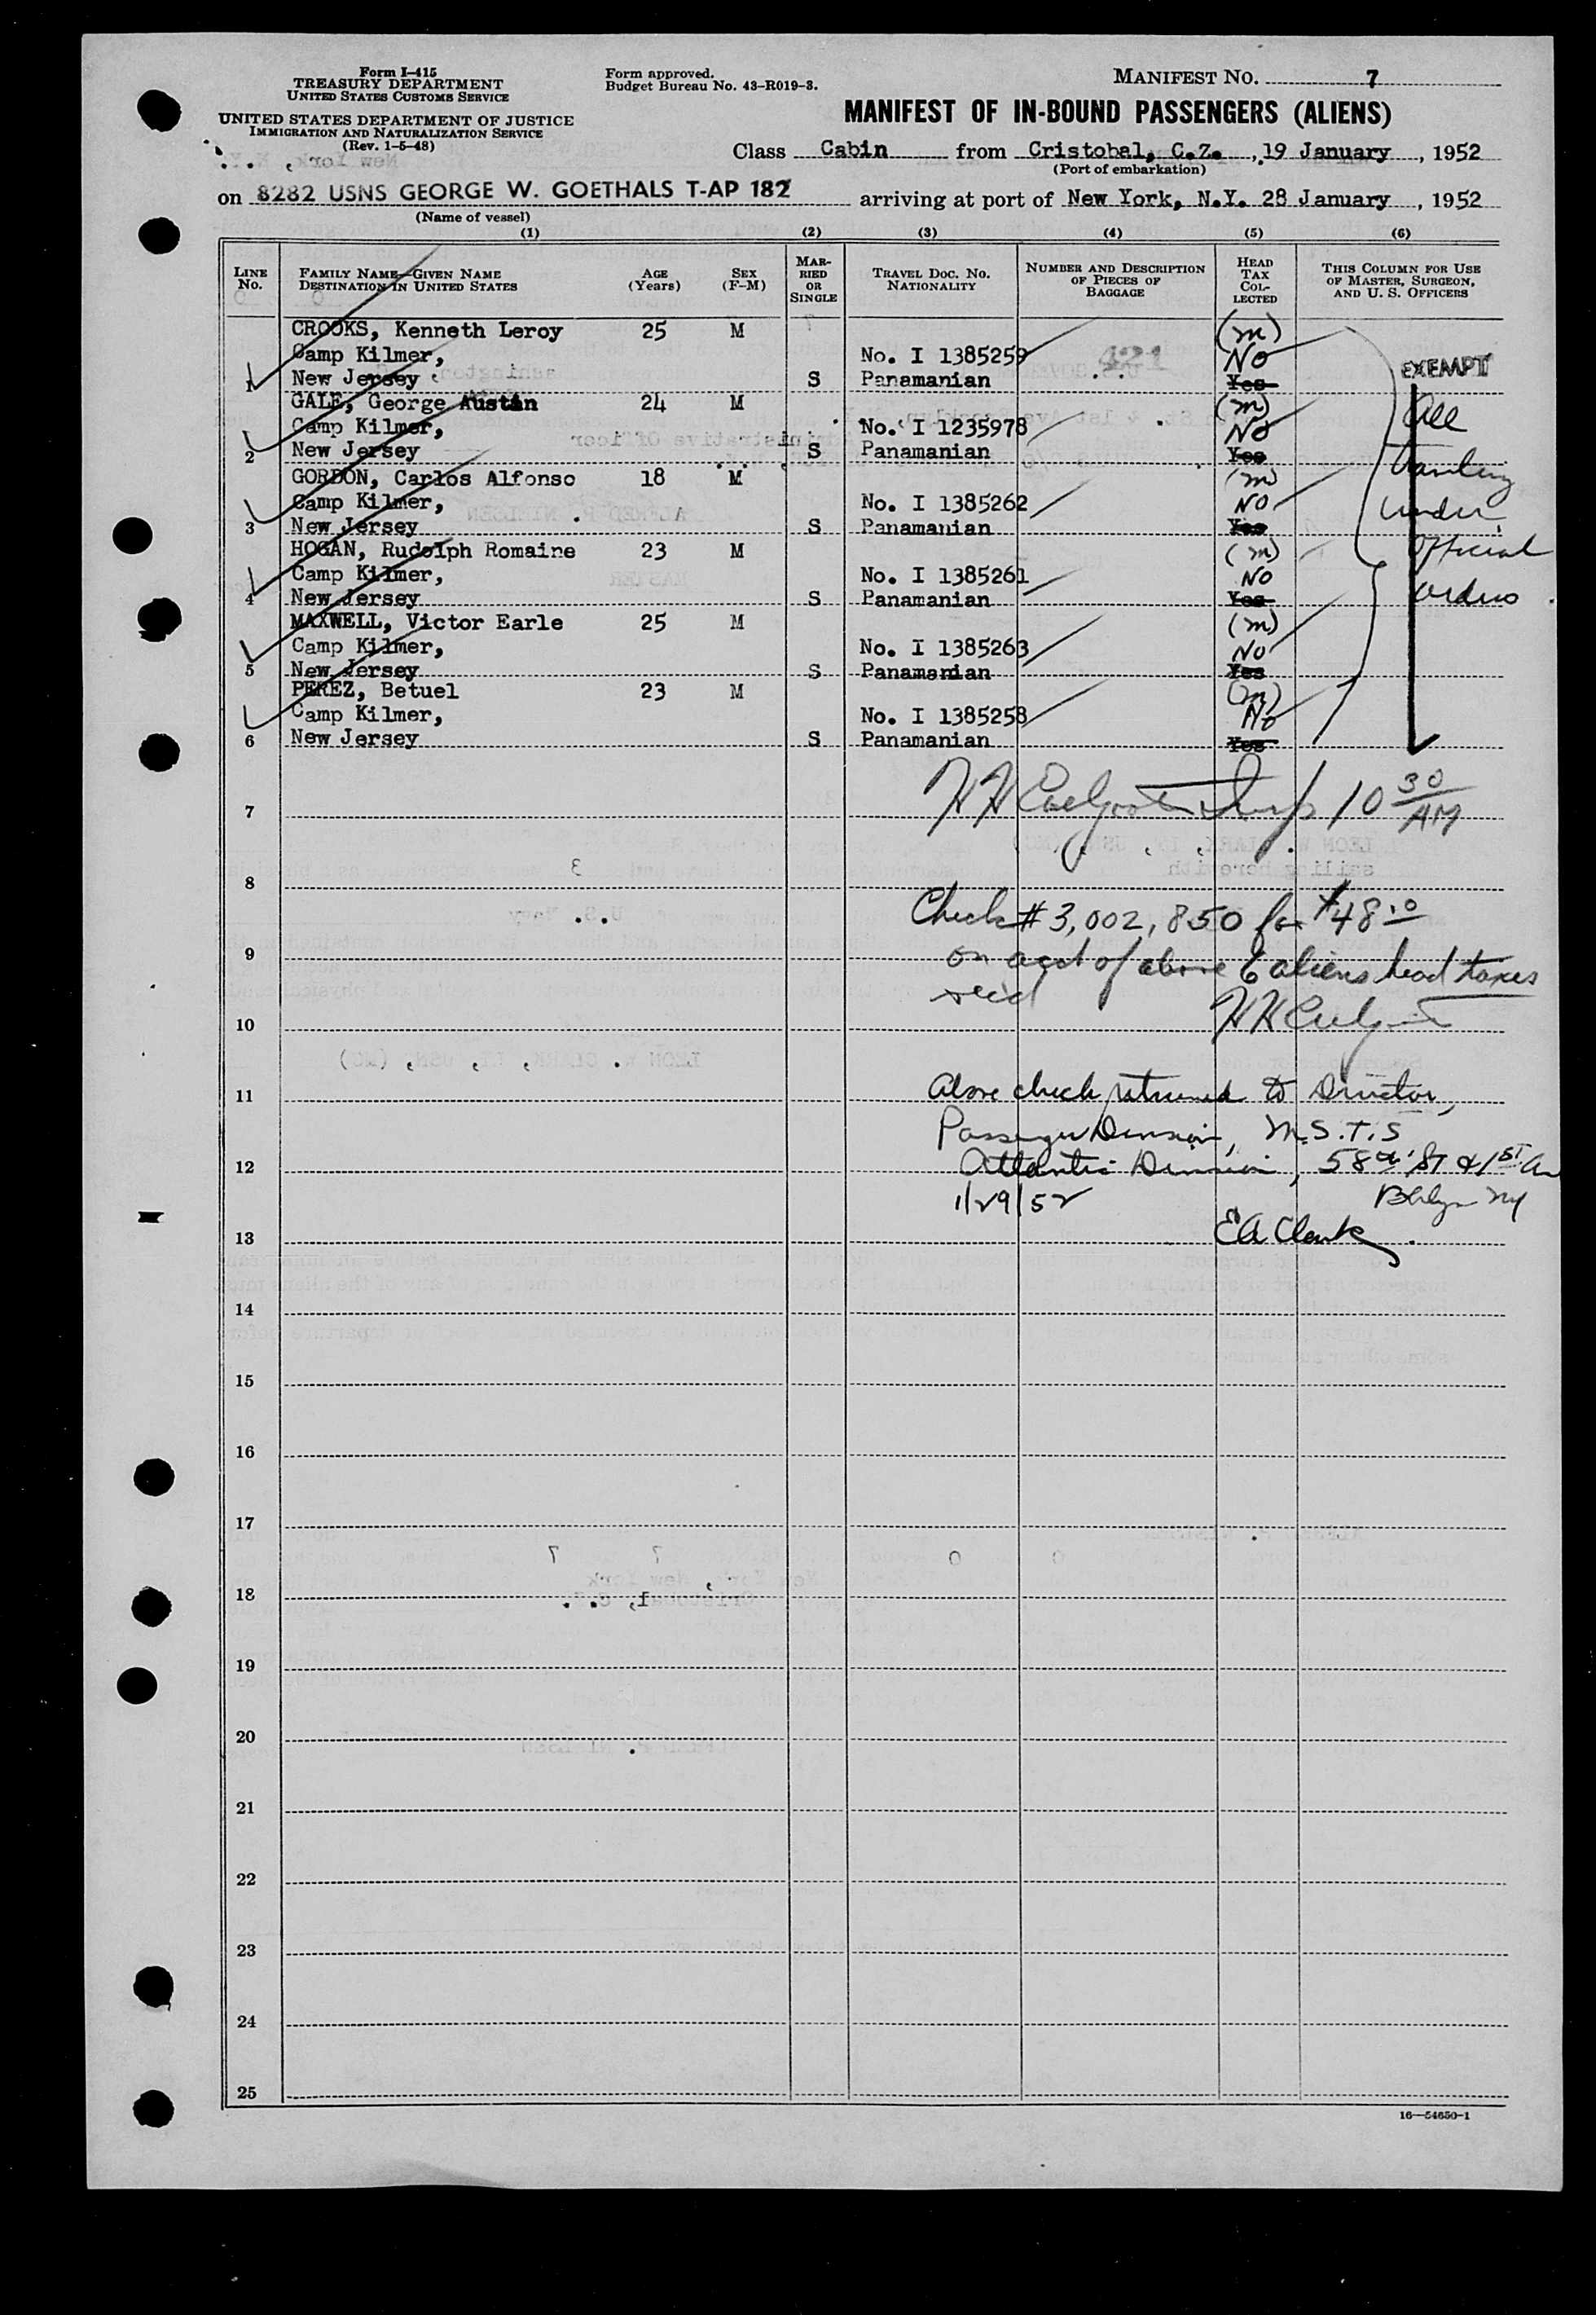 Form I-415
TREASURY DEPARTMENT
UNITED STATES CUSTOMS SERVICE
UNITED STATES DEPARTMENT OF JUSTICE
IMMIGRATION AND NATURALIZATION SERVICE
(Rev. 1-5-48)
Form approved.
Budget Bureau No. 43-R019-3.
MANIFEST NO. 7
MANIFEST OF IN-BOUND PASSENGERS (ALIENS)
Class Cabin from Cristobal, C.Z. , 19 January , 1952
(Port of embarkation)
on 8282 USNS GEORGE W. GOETHALS T-AP 182 arriving at port of New York, N.Y. 28 January , 1952
(Name of vessel)
(1) (2) (3) (4) (5) (6)
LINE No. FAMILY NAME—GIVEN NAME DESTINATION IN UNITED STATES AGE (Years) SEX (F-M) MARRIED OR SINGLE TRAVEL DOC. NO. NATIONALITY NUMBER AND DESCRIPTION OF PIECES OF BAGGAGE HEAD TAX COLLECTED THIS COLUMN FOR USE OF MASTER, SURGEON, AND U. S. OFFICERS
CROOKS, Kenneth Leroy 25 M (m)
Camp Kilmer, No. I 1385259 421 No EXEMPT
1 New Jersey S Panamanian Yes
GALE, George Austin 24 M (m) All
Camp Kilmer, No. I 1235978 No
2 New Jersey S Panamanian Yes
GORDON, Carlos Alfonso 18 M (m)
Camp Kilmer, No. I 1385262 No under
3 New Jersey S Panamanian Yes
HOGAN, Rudolph Romaine 23 M (m) official
Camp Kilmer, No. I 1385261 No
4 New Jersey S Panamanian Yes orders
MAXWELL, Victor Earle 25 M (m)
Camp Kilmer, No. I 1385263 No
5 New Jersey S Panamanian Yes
PEREZ, Betuel 23 M (m)
Camp Kilmer, No. I 1385258 No
6 New Jersey S Panamanian Yes
7 10 30 AM
8
Check # 3,002,850 for $48.00
9 on acct of above 6 aliens head taxes
rec'd
10
11 Above check returned to Director,
Passenger Division, M.S.T.S
12 Atlantic Division, 58th St & 1st Av
1/29/52 Bklyn NY
13 EA Clark
14
15
16
17
18
19
20
21
22
23
24
25
16—54650-1